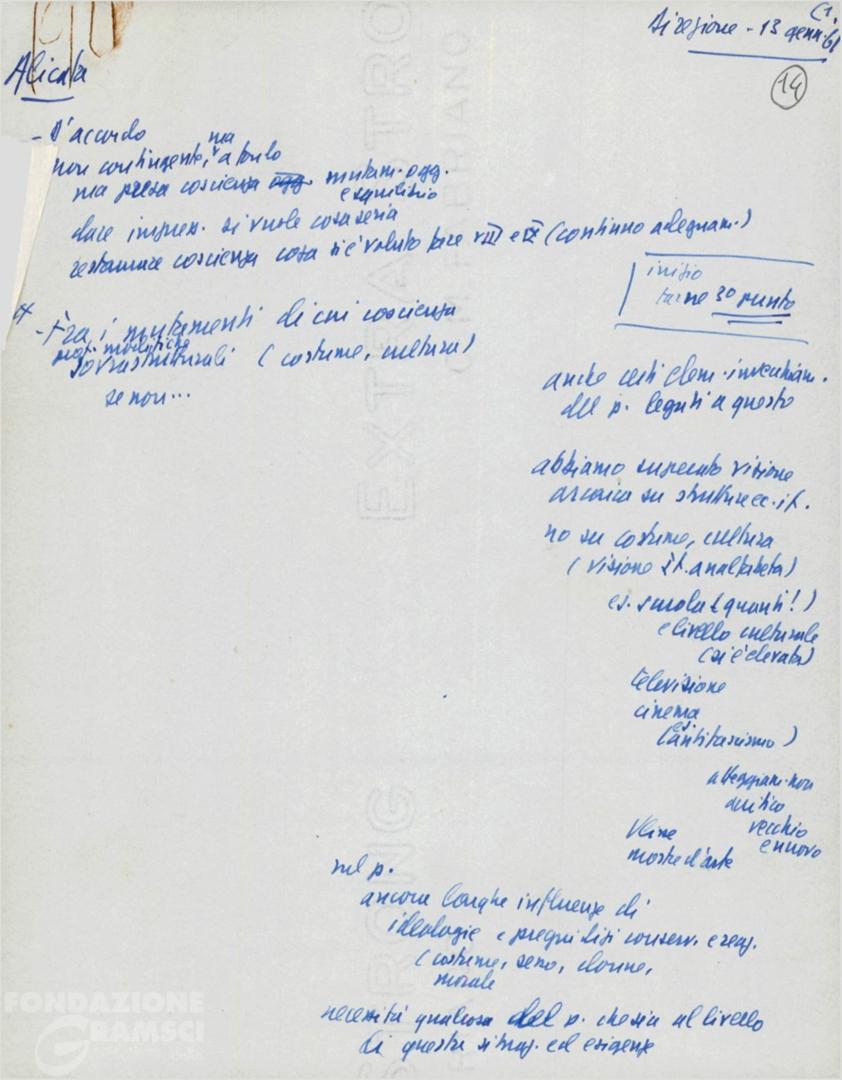 Direzione - 13 genn. 61
14
Alicata
- D'accordo
non contingente, ma a fondo
ma presa coscienza ogg. mutam. ogg.
e squilibrio
dare impress. si vuole cosa seria
restaurare coscienza cosa si è voluto fare VIII e IX (continuo adeguam.)
inizio
farne 3º punto
- Fra i mutamenti di cui coscienza
sovrastrutturali (costume, cultura)
se non...
anche certi elem. invecchiam.
del p. legati a questo
abbiamo superato visione
arcaica su strutture ec. it.
no su costume, cultura
(visione It. analfabeta)
es. scuola (quanti!)
e livello culturale
(si è elevato)
televisione
cinema
(antifascismo)
atteggiam. non
critico
vecchio
e nuovo
mostre d'arte
nel p.
ancora larghe influenze di
ideologie e pregiudizi conserv. e reaz.
(costume, sesso, donne,
morale
necessità qualcosa del p. che sia al livello
di questa situaz. ed esigenze
EXTRA STRO
FABRIANO
STRONG
FONDAZIONE
GRAMSCI